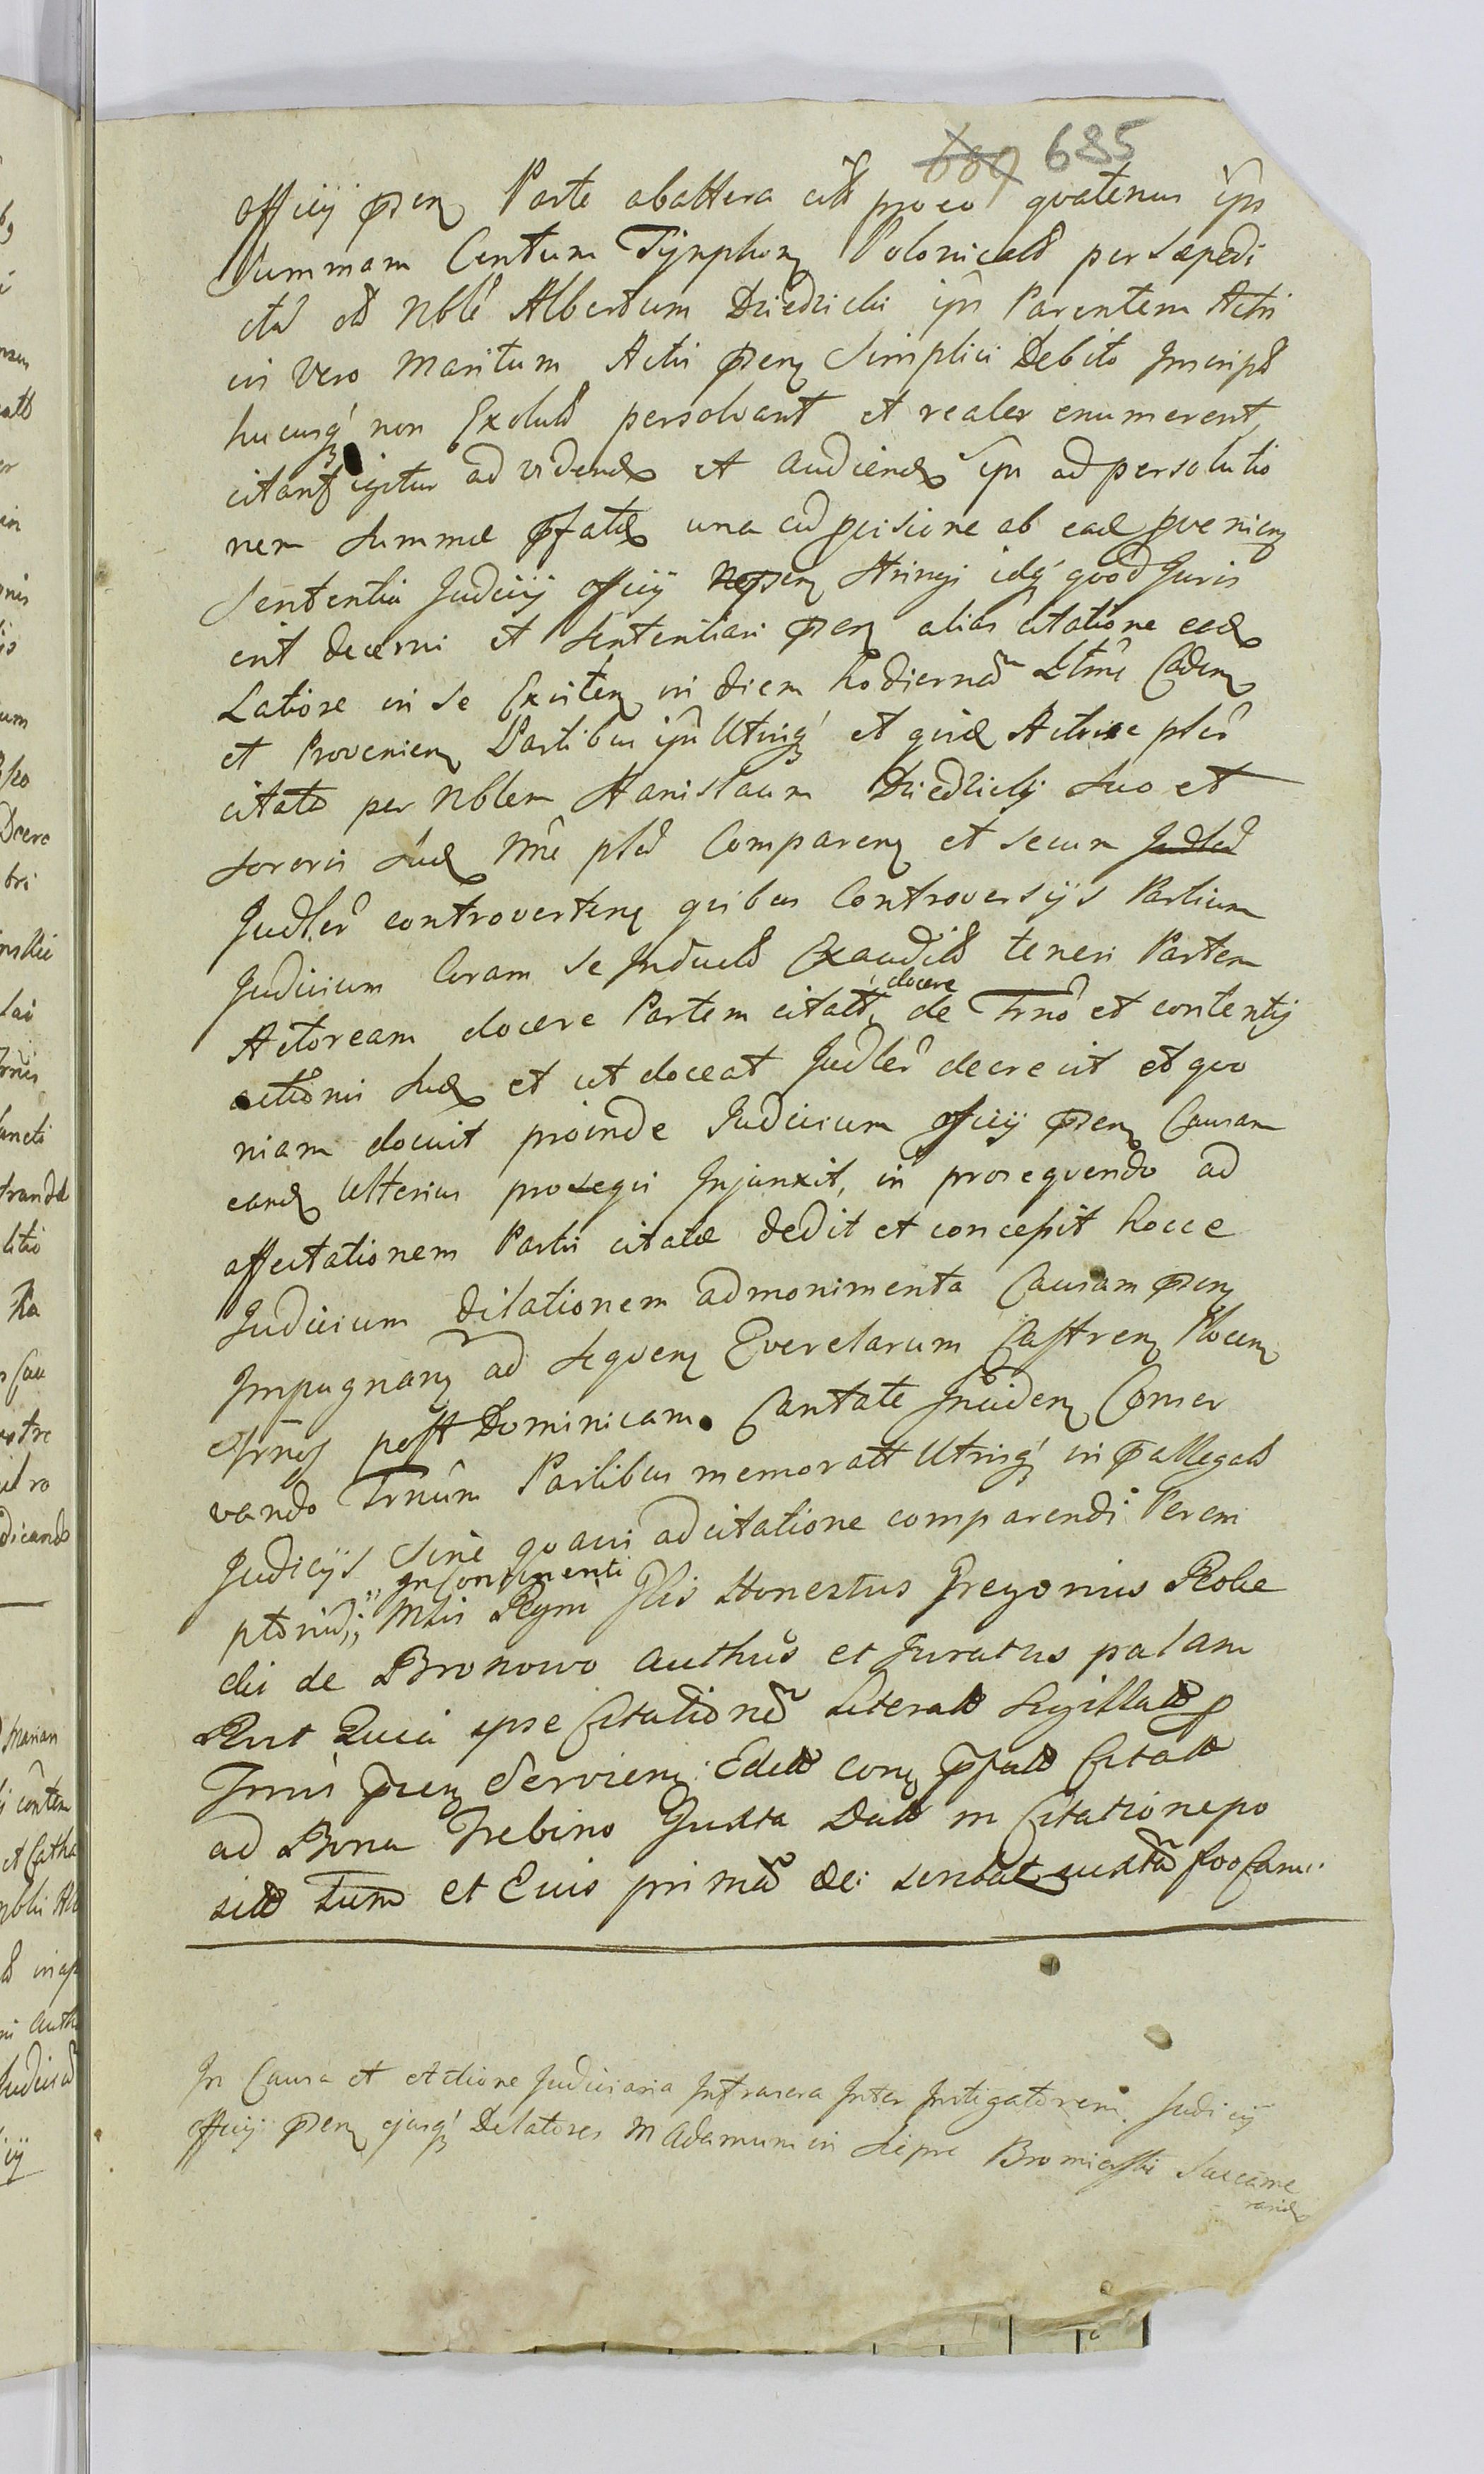 689 685
officij pñen Parte ab altera citt pro eo quatenus ipsi
Summam Centum Tÿnphon Polonicalt per saepedi
ctū olt Nblē Albertum Dziedzicki ipsi Parentem Acti
ci vero Maritum Actis pñen Simplici Debito Inscript
hucusq non Exolutt persolvant et realer enumerent,
citant igitur ad videndꝭ et audiendꝭ ipsi ad persolutio
nem Summæ pfatæ una cū pcisione ab eade pvenien
Sententia Judicij officij pñen Stringi idq quod Juris
erit decerni et Sententiari pñen alias citatione eadꝭ
Latiore in se Existen in diem hodiernā Ltīme Caden
et Provenien Partibus ipsi Utrisq et quidē Actore plēr
citato per Nblem Stanislaum Dziedzicki suo et
sororis suæ Nñe plēr Comparen et secum Judlēr
Judlēr controverten quibus Controversijs Partium
Judicium Coram se Inductt Exauditt teneri Partem
Actoream docere Partem citatt docere de Trnō et contentis
actionis suæ et ut doceat Judlēr decrevit et quo
niam docuit proinde Judicium officij pñen Causam
eandꝭ Ulterius prosequi Injunxit, in prosequendo ad
affectationem Partis citatæ dedit et concessit hocce
Judicium dilationem ad monimenta Causam pñen
Impugnan ad sequen Querelarum Castren Plocen
Trnos post Dominicam Cantate Inciden Conser
vando Trnūm Partibus memoratt Utrisq in pallegatt
Judicijs Sine quavis adcitatione comparendi Perem
ptoriū, Incontinenti Mtis Regni Glis Honestus Gregorius Kobe
cki de Bronowo Authūs et Juratus palam
Rut Quia ipse Citationē Literatt Sigillatt
Trnis pñen Servien Editt con pfatt Citatt
ad Bona Trebino Juxta Datt in Citatione po
sitt Tum et Eius primā Dei
In Causa et Actione Judiciaria Infrascra Inter Instigatorem Judicij
officij pñen ejusq Delatores M Adamum in Lipie Bromierski Succame
rariū